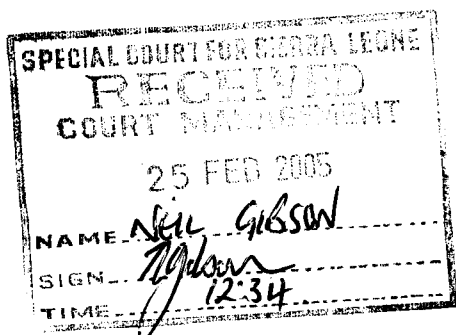 SPECIAL COURT FOR SIERRA LEONE
RECEIVED
COURT MANAGEMENT
25 FEB 2005
NAME NEIL GIBSON
SIGN NGibson
TIME 12:34